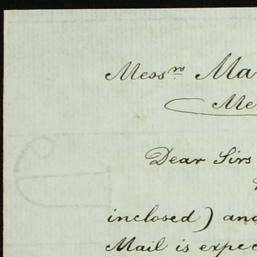 Messrs Ma
Me
Dear Sirs
inclosed) and
Mail is expec